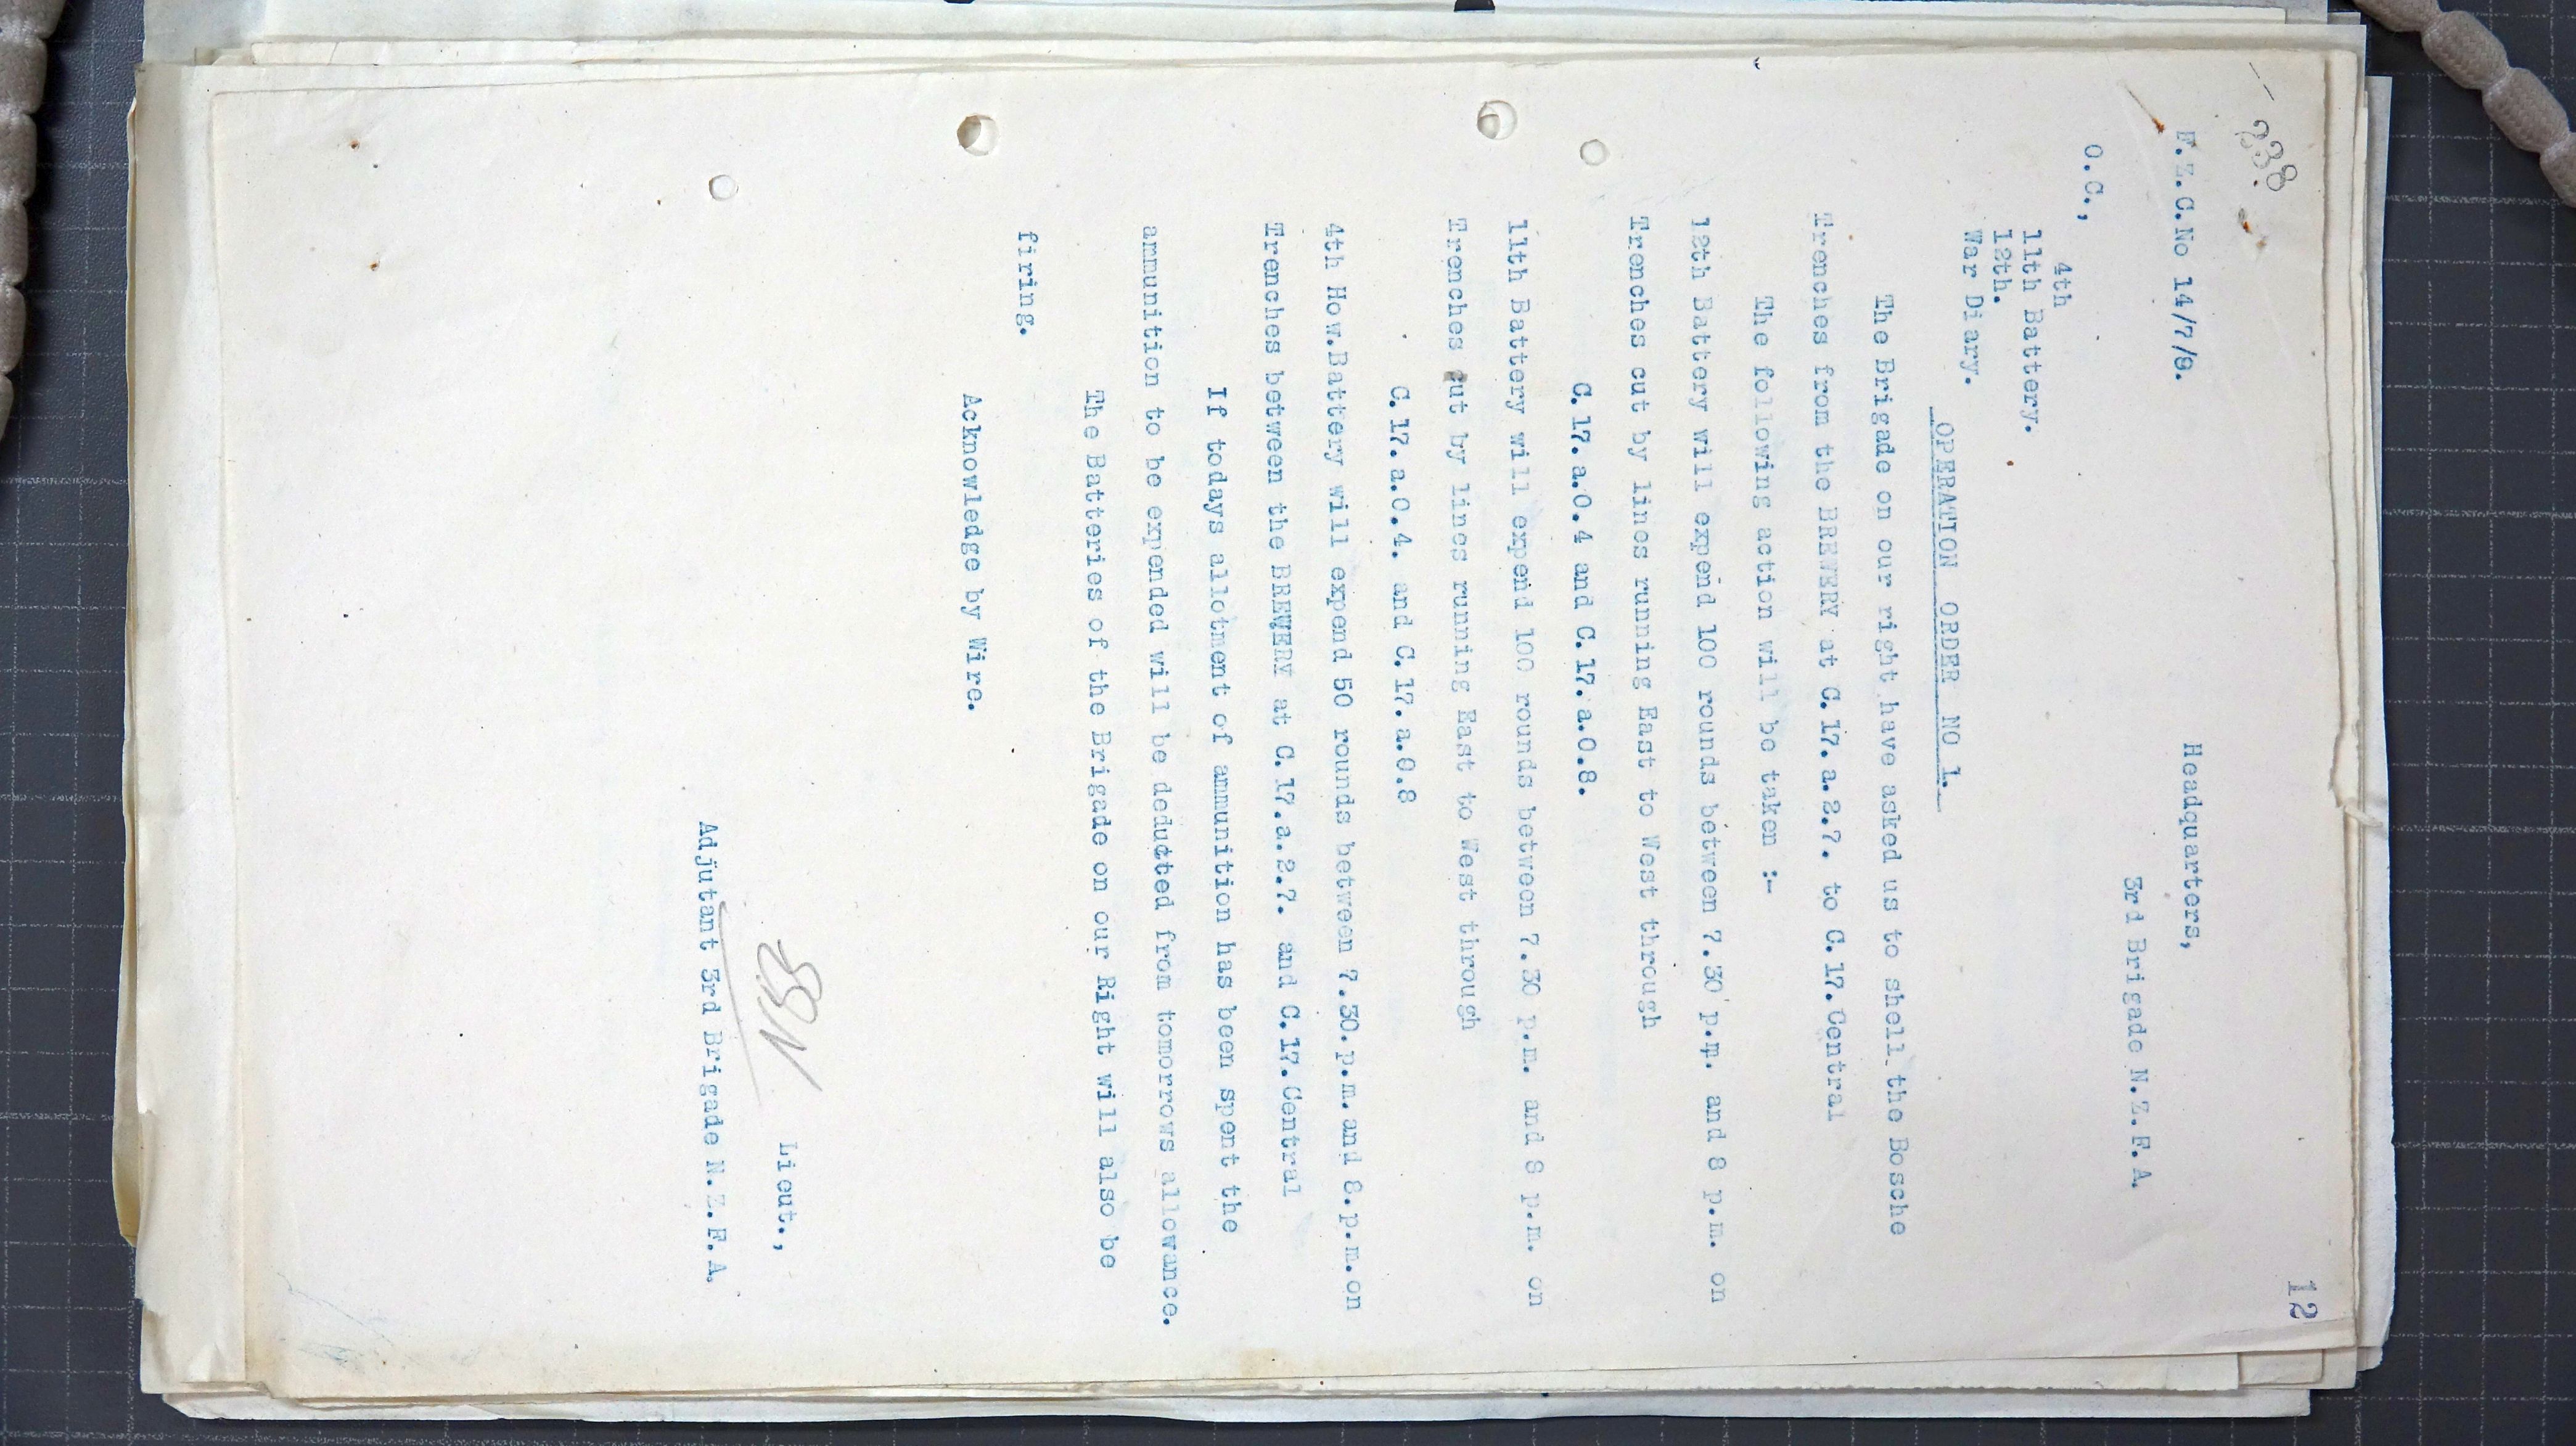 238
12
F.Z.C.No 14/7/8.
Headquarters,
3rd Brigade N.Z.F.A.
O.C.,
4th
11th Battery.
12th.
War Diary.
OPERATION ORDER NO 1.
The Brigade on our right have asked us to shell the Bosche
Trenches from the BREWERY at C.17.a.2.7. to C.17.Central
The following action will be taken :-
12th Battery will expend 100 rounds between 7.30 p.m. and 8 p.m. on
Trenches cut by lines running East to West through
C.17.a.0.4 and C.17.a.0.8.
11th Battery will expend 100 rounds between 7.30 p.m. and 8 p.m. on
Trenches cut by lines running East to West through
C.17.a.0.4. and C.17.a.0.8
4th How.Battery will expend 50 rounds between 7.30.p.m.and 8.p.m.on
Trenches between the BREWERY at C.17.a.2.7. and C.17.Central
If todays allotment of ammunition has been spent the
ammunition to be expended will be deducted from tomorrows allowance.
The Batteries of the Brigade on our Right will also be
firing.
Acknowledge by Wire.
Lieut.,
Adjutant 3rd Brigade N.Z.F.A.